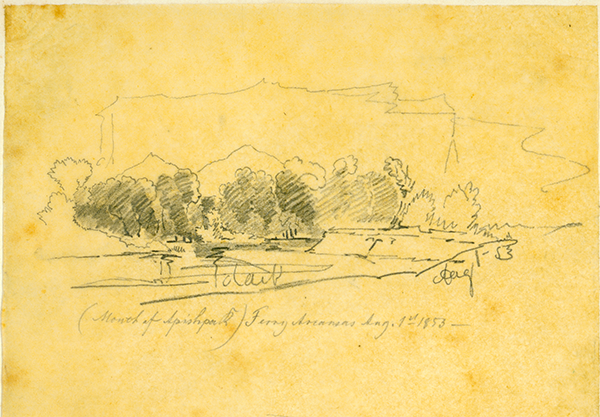 Aug 1 - 53
(Mouth of Apishpah) Ferry Arcansas Aug. 1st 1853 —